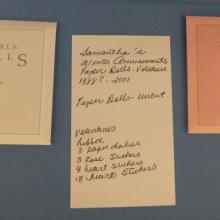 RLS'
LLS
Samantha's
Winter Amusements
Paper Dolls - Valentines
1988? - 2001
Paper Dolls - Uncut
Valentines
Ribbon
3 Paper doilies
3 Rose Stickers
4 heart stickers
18 heart Stickers